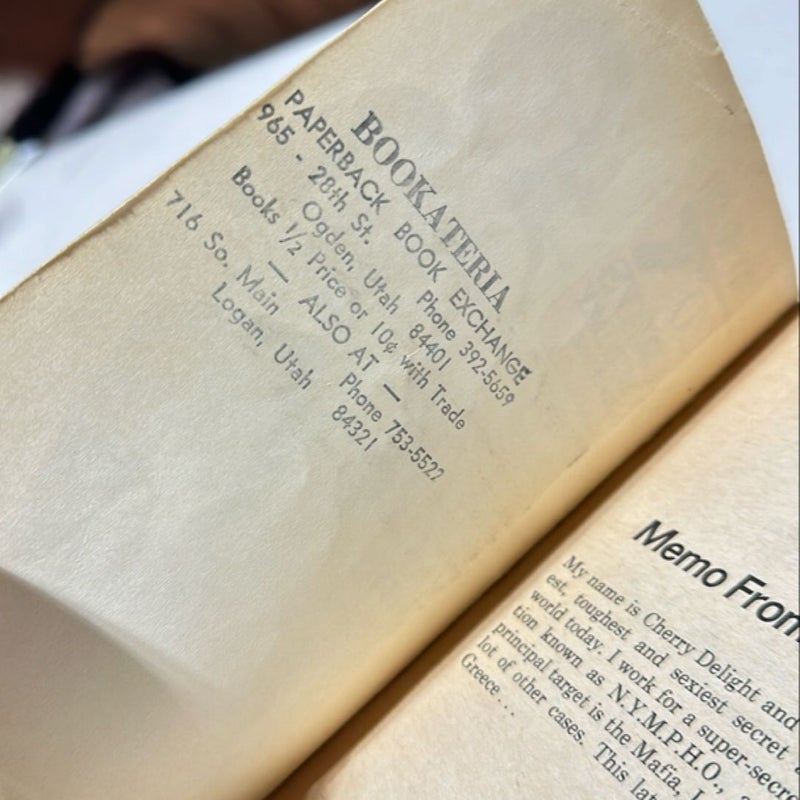 BOOKATERIA
PAPERBACK BOOK EXCHANGE
965 - 28th St. Phone 392-5659
Ogden, Utah 84401
Books 1/2 Price or 10¢ with Trade
— ALSO AT —
716 So. Main Phone 753-5522
Logan, Utah 84321
Memo From
My name is Cherry Delight and
est, toughest and sexiest secret
world today. I work for a super-secre
tion known as N.Y.M.P.H.O.,
principal target is the Mafia, I
lot of other cases. This lat
Greece...